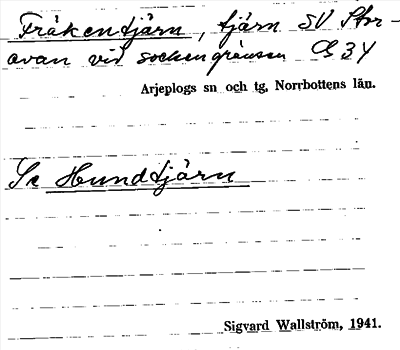 Fräkentjärn, tjärn SV Stor-
avan vid sockengränsen G 34
Arjeplogs sn och tg, Norrbottens län.
Se Hundtjärn
Sigvard Wallström, 1941.